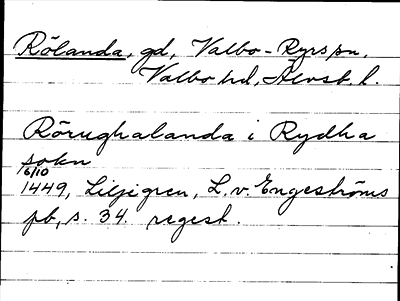 Rölanda, gd, Valbo-Ryrs sn,
Valbo hd, Älvsb. l.
Rörughalanda i Rydha
sokn
16/10
1449, Liljegren, L. v. Engeströms
pb, s. 34 regest.